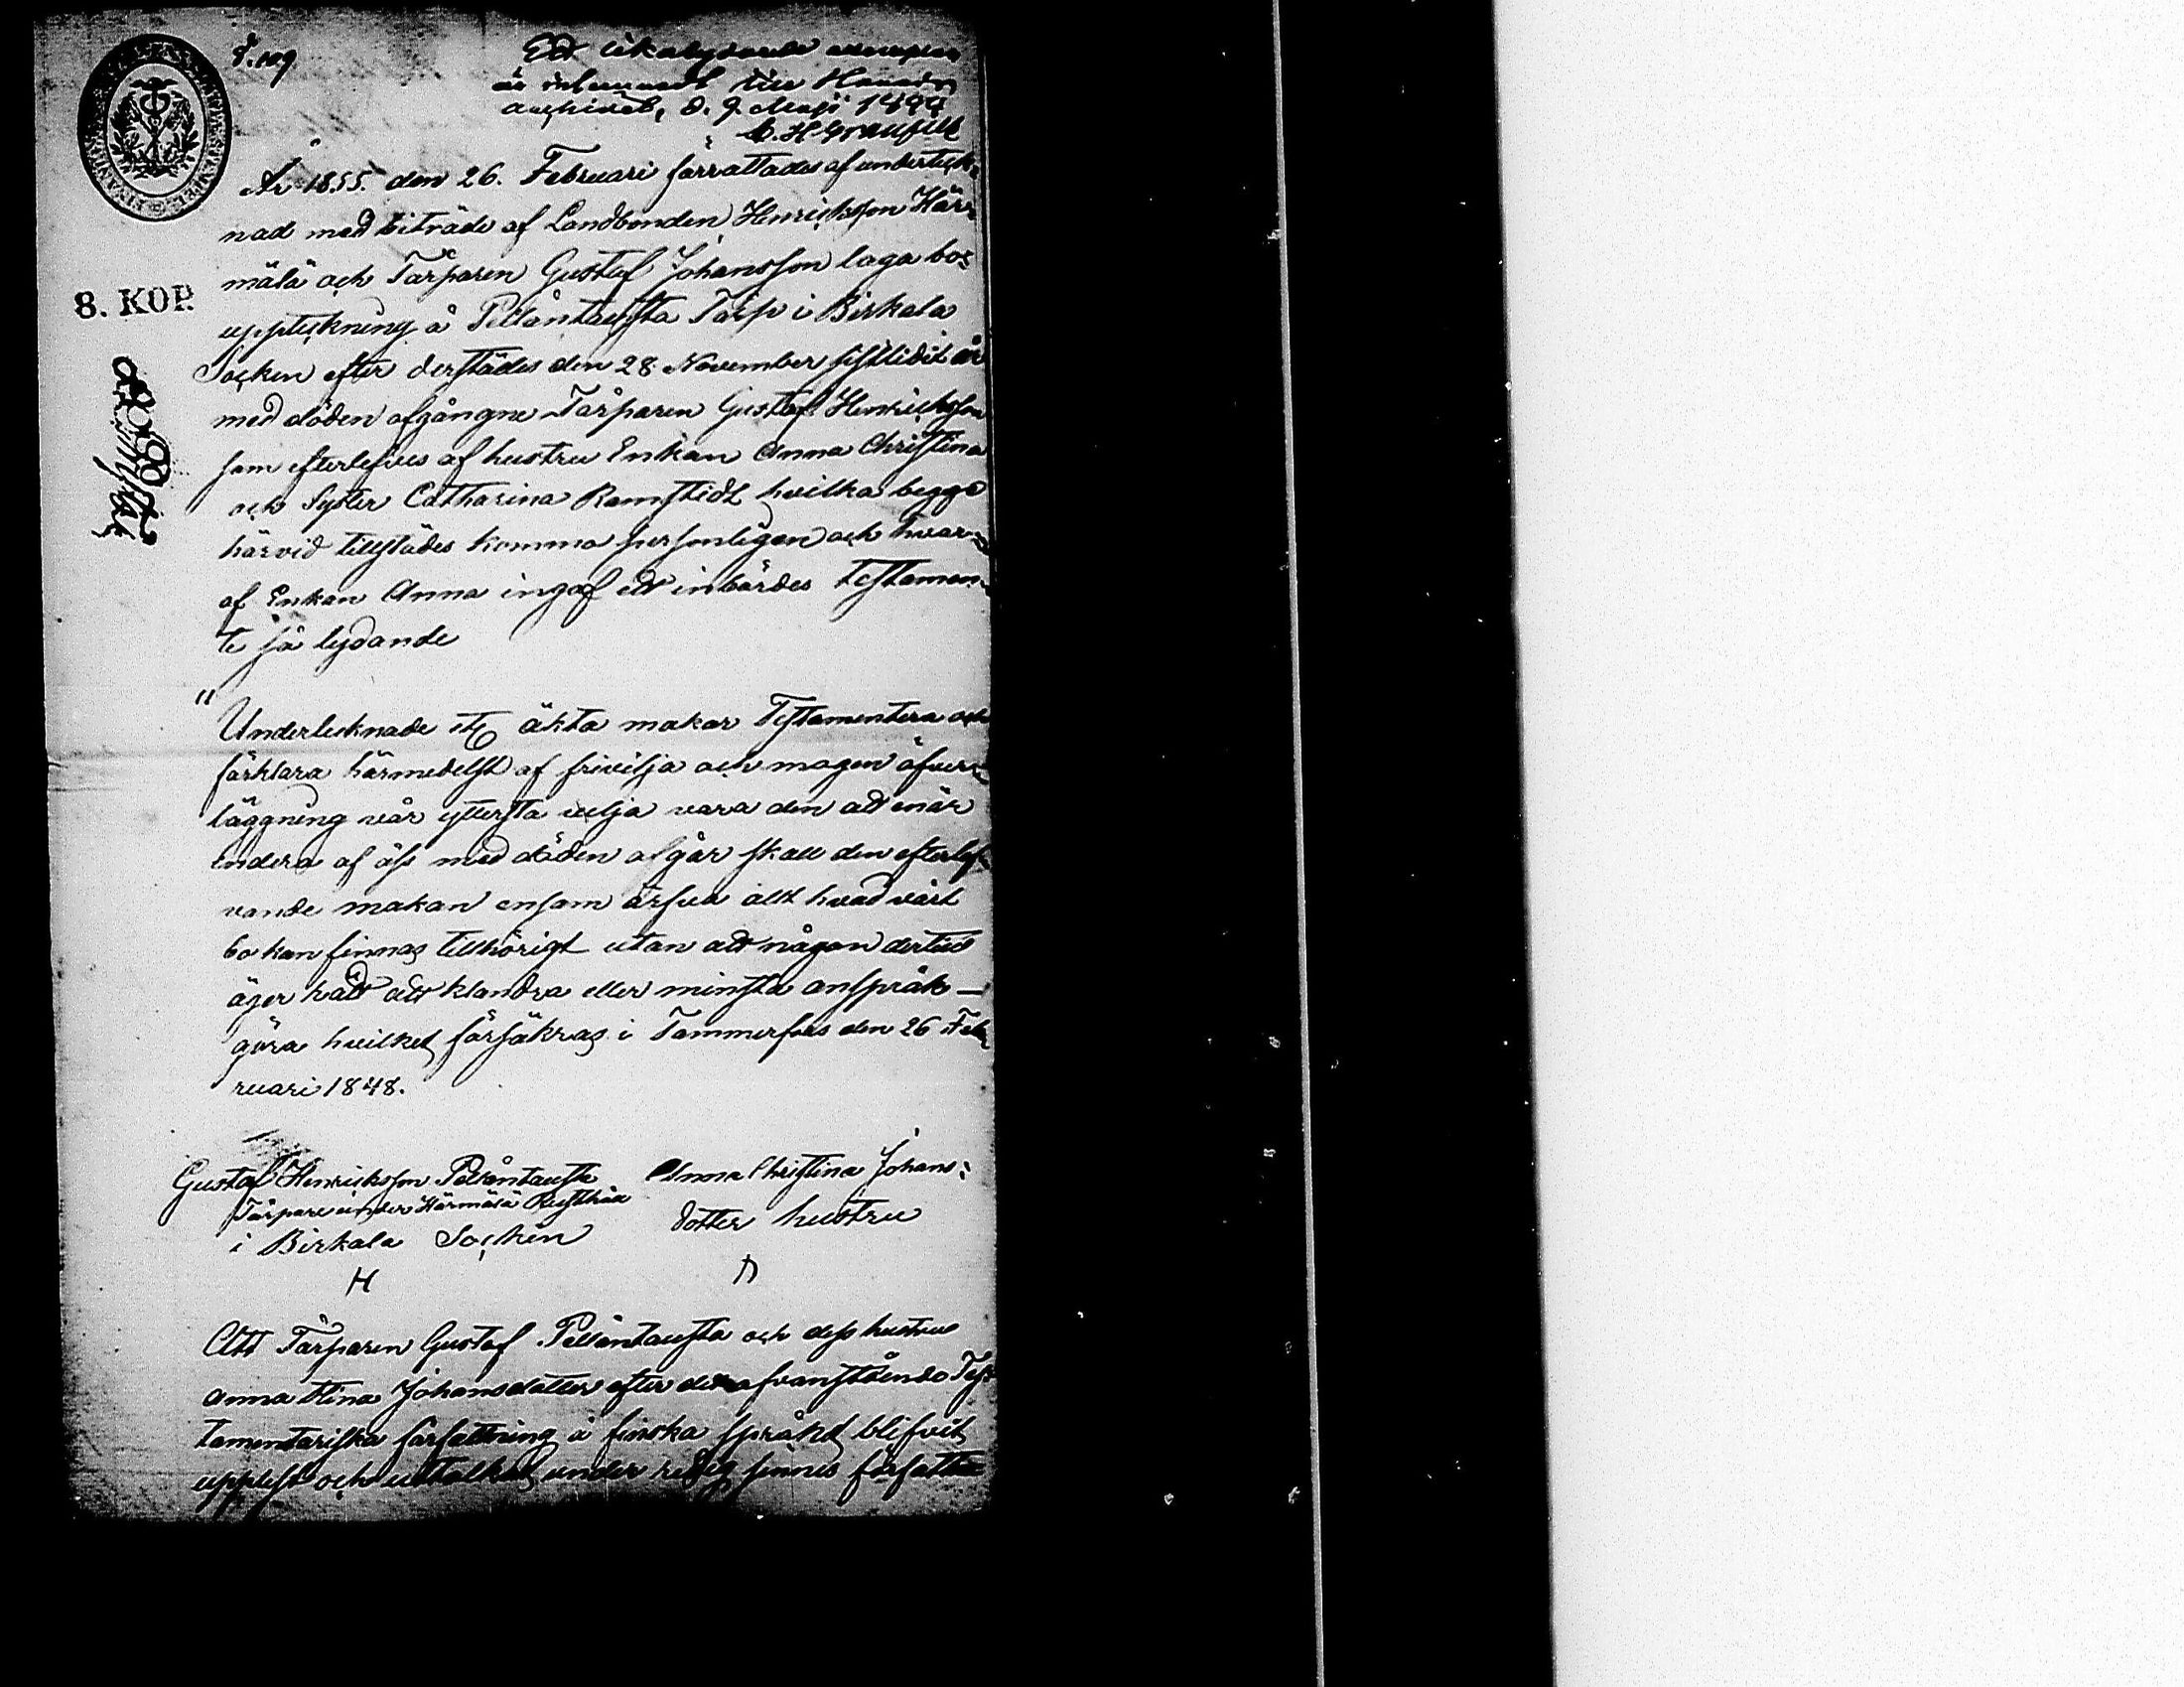 Ett likalydande exemplar
är inlemnadt till Härads
archivet, d. 9 Maji 1899
År 1855 den 26. Februari förrättades af underteck-
nad med biträde af Landbonden Henricksson Här-
mälä och Torparen Gustaf Johansson laga bo-
uppteckning å Pellåntausta Torp i Birkala
Socken efter derstädes den 28 November sistlidit år
med döden afgångne Torparen Gustaf Henricksson
som efterlefves af hustru Enkan Anna Christina
och Syster Catharina Ramstedt hvilka begge
härvid tillstädes komma personligen och hvar-
af Enkan Anna ingaf ett inbördes testamen-
te så lydande
"Undertecknade äkta makar Testamentera och
förklara härmedelst af frivilja och mogen öfver-
läggning vår yttersta vilja vara den att enär
endera af oss med döden afgår skall den efterlef-
vande makan ensam ärfva allt hvad vårt
bo kan finnas tillhörigt utan att någon dertill
äger hått att klandra eller minsta anspråk —
göra hvilket försäkras i Tammerfors den 26 Feb-
ruari 1848.
Gustaf Henricksson Pellåntausta Anna Christina Johans-
Torpare under Härmälä Rusthåll dotter hustru
i Birkala Socken
H
Att Torparen Gustaf Pellåntausta och dess hustru
Anna Stina Johansdotter efter det ofvanstående Tes-
tamentariska författning å finska språket blifvit
uppläst och uttalkat under redig sinnes författ
8. KOP.